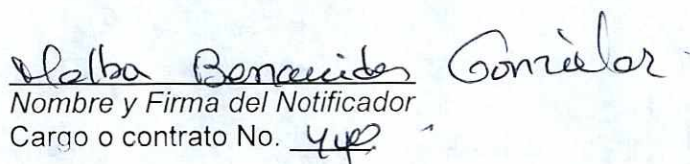 Melba Benavides González
Nombre y Firma del Notificador
Cargo o contrato No.